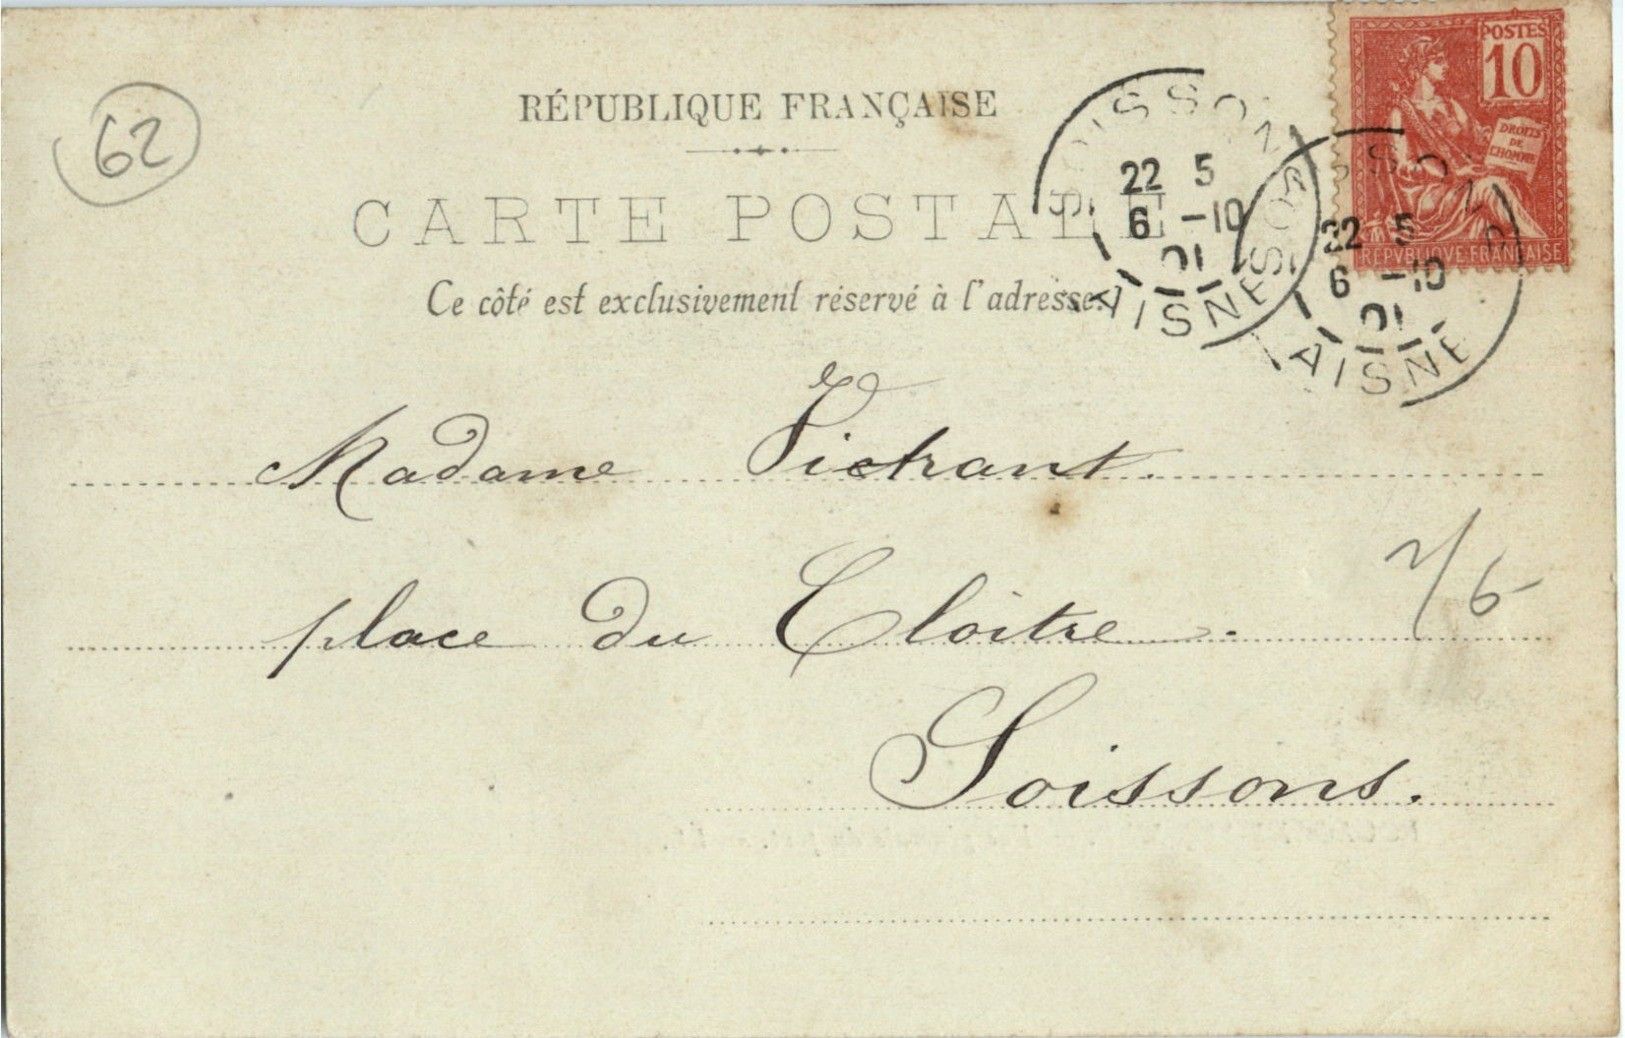 62
RÉPUBLIQUE FRANÇAISE
CARTE POSTALE
Ce côté est exclusivement réservé à l'adresse.
POSTES
10
DROITS
DE
L'HOMME
REPVBLIQVE FRANÇAISE
SOISSONS
22 5
6 -10
01
AISNE
SOISSONS
22 5
6 -10
01
AISNE
Madame
place du Cloître.
7/6
Soissons.